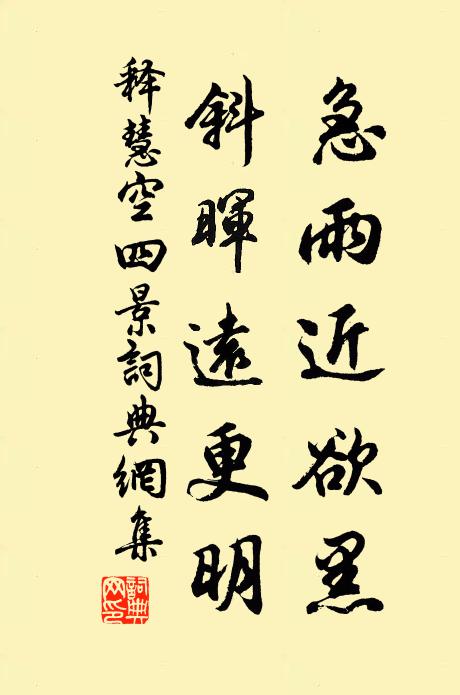 急雨近欲黑
斜暉遠更明
释慧空四景詞典網集
詞典網印